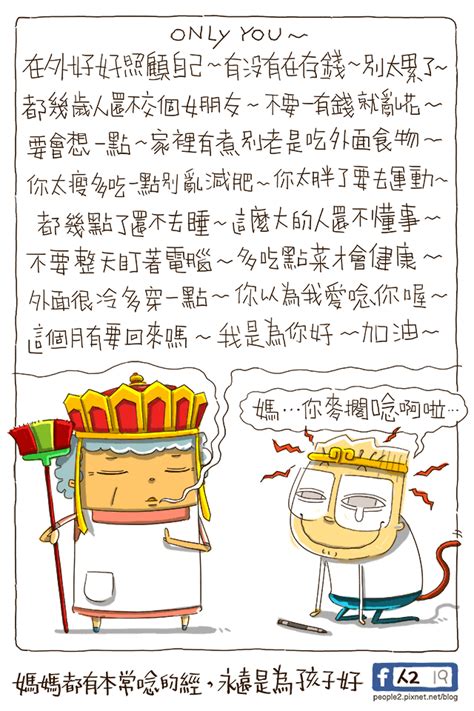 ONLY YOU~
在外好好照顧自己~有沒有在存錢~別太累了~
都幾歲人還不交個女朋友~不要一有錢就亂花~
要會想一點~家裡有煮別老是吃外面食物~
你太瘦多吃一點別亂減肥~你太胖了要去運動~
都幾點了還不去睡~這麼大的人還不懂事~
不要整天盯著電腦~多吃點菜才會健康~
外面很冷多穿一點~你以為我愛唸你喔~
這個月有要回來嗎~我是為你好~加油~
媽…你麥擱唸啊啦…
媽媽都有本常唸的經，永遠是為孩子好
f 人2 19
people2.pixnet.net/blog